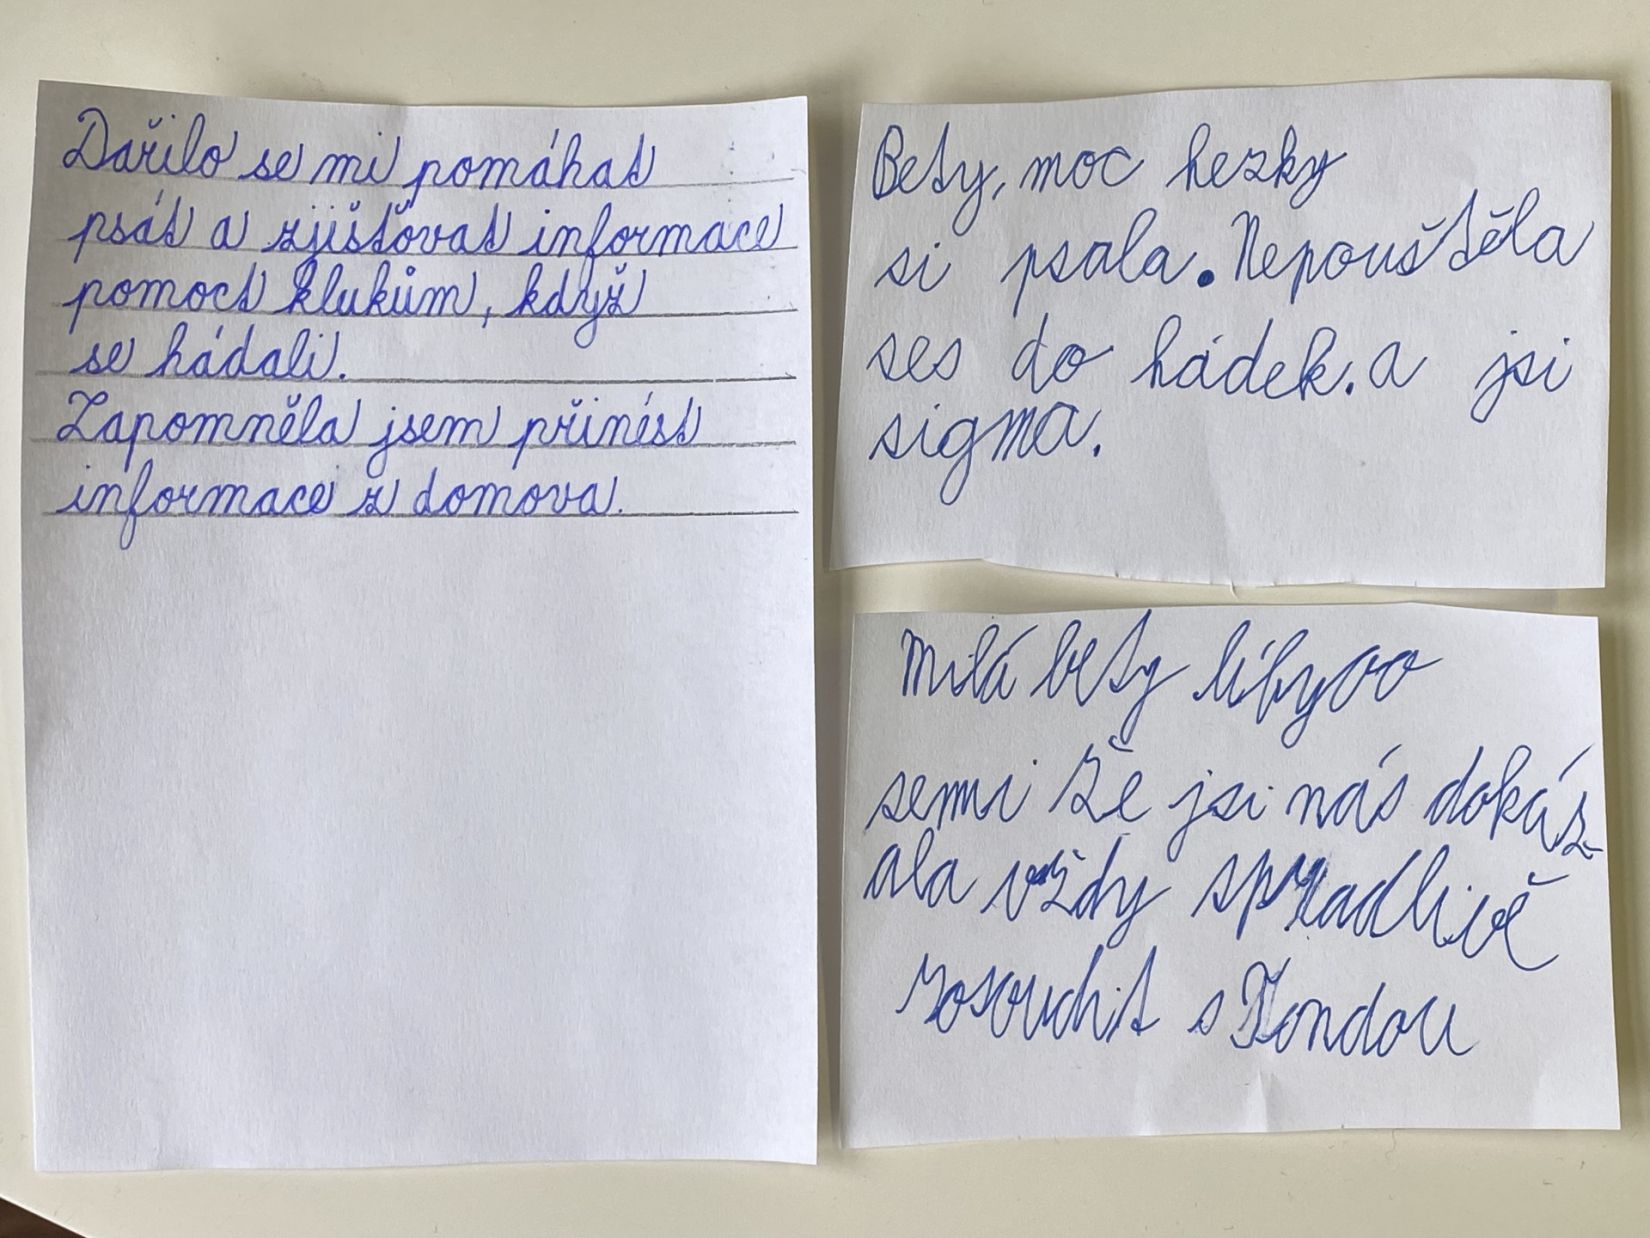 Dařilo se mi pomáhat
psát a zjišťovat informace
pomoct klukům, když
se hádali.
Zapomněla jsem přinést
informace z domova.
Bety, moc hezky
si psala. Nepouštěla
ses do hádek. a jsi
sigma.
Milá bety líby
semi že jsi nás dokáz
ala vždy spradlivě
rosoudit s